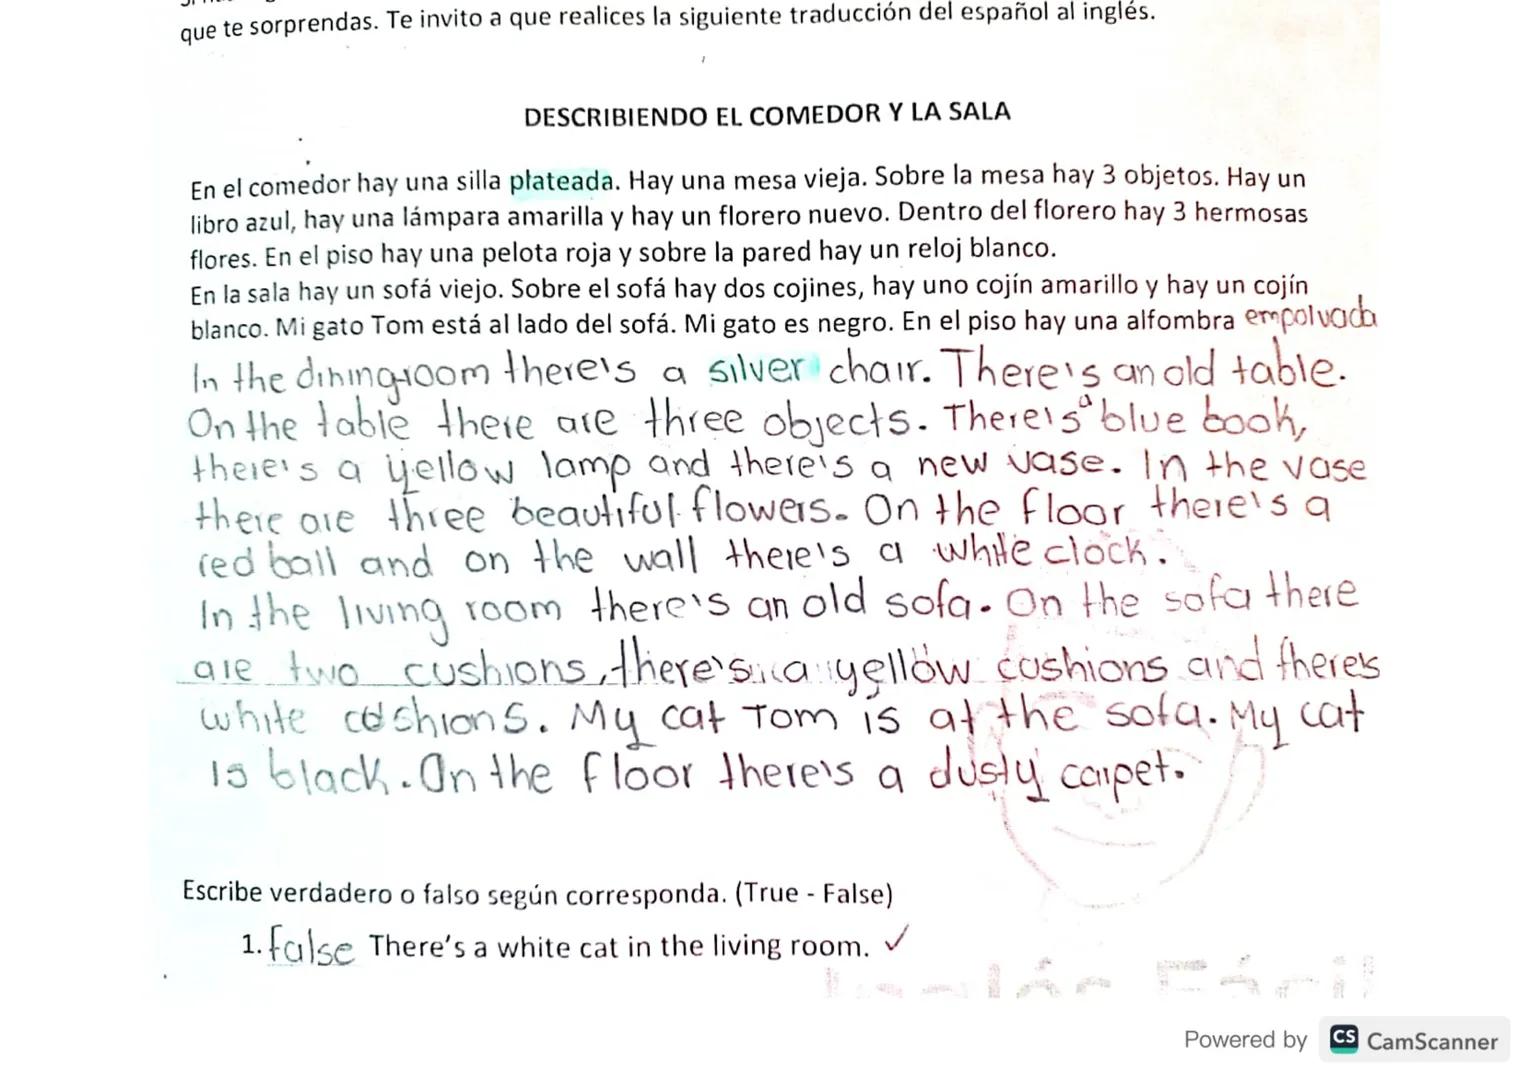 que te sorprendas. Te invito a que realices la siguiente traducción del español al inglés.
DESCRIBIENDO EL COMEDOR Y LA SALA
En el comedor hay una silla plateada. Hay una mesa vieja. Sobre la mesa hay 3 objetos. Hay un
libro azul, hay una lámpara amarilla y hay un florero nuevo. Dentro del florero hay 3 hermosas
flores. En el piso hay una pelota roja y sobre la pared hay un reloj blanco.
En la sala hay un sofá viejo. Sobre el sofá hay dos cojines, hay uno cojín amarillo y hay un cojín
blanco. Mi gato Tom está al lado del sofá. Mi gato es negro. En el piso hay una alfombra empolvada
In the diningroom there's a silver chair. There's an old table.
On the table there are three objects. There's a blue book,
there's a yellow lamp and there's a new vase. In the vase
there are three beautiful flowers. On the floor there's a
red ball and on the wall there's a white clock.
In the living room there's an old sofa. On the sofa there
are two cushions, there's a yellow cushions and there's
white cushions. My cat Tom is at the sofa. My cat
is black. On the floor there's a dusty carpet.
Escribe verdadero o falso según corresponda. (True - False)
1. false There's a white cat in the living room. ✓
Powered by CS CamScanner